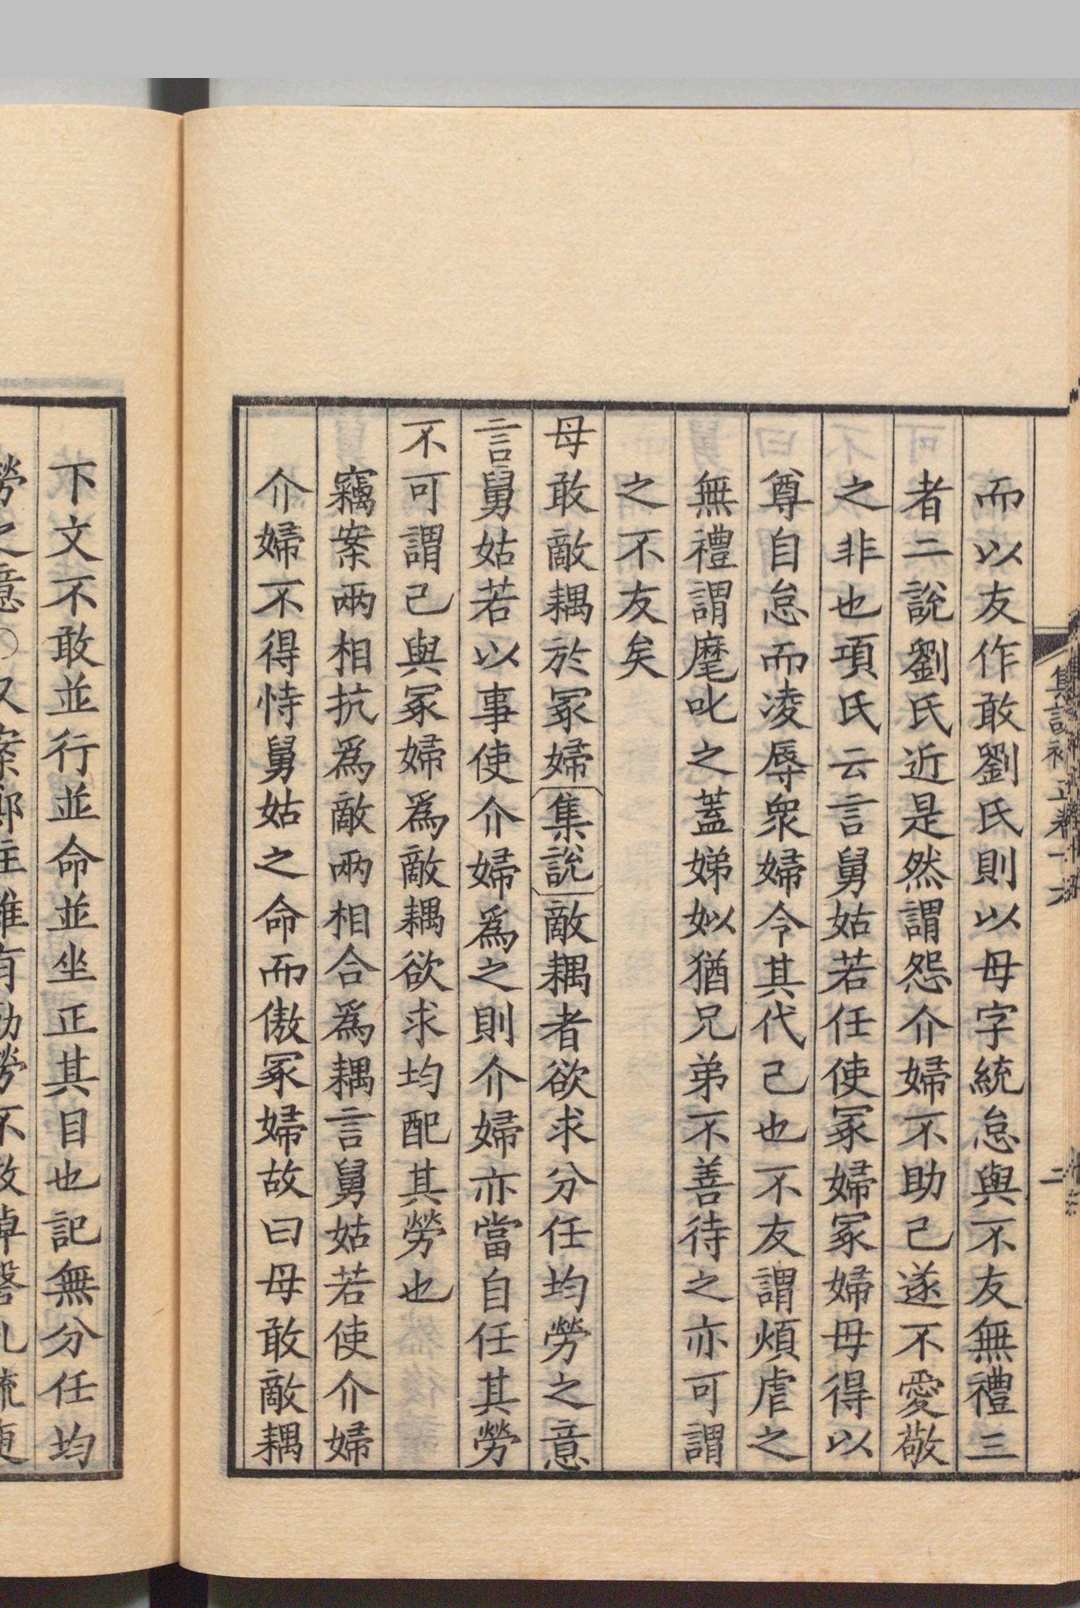 集說補正卷十六
二
而以友作敢劉氏則以母字統怠與不友無禮三
者二說劉氏近是然謂怨介婦不助己遂不愛敬
之非也項氏云言舅姑若任使冢婦冢婦毋得以
尊自怠而凌辱衆婦令其代己也不友謂煩虐之
無禮謂麾叱之蓋娣姒猶兄弟不善待之亦可謂
之不友矣
毋敢敵耦於冢婦集說敵耦者欲求分任均勞之意
言舅姑若以事使介婦爲之則介婦亦當自任其勞
不可謂己與冢婦爲敵耦欲求均配其勞也
竊案兩相抗爲敵兩相合爲耦言舅姑若使介婦
介婦不得恃舅姑之命而傲冢婦故曰毋敢敵耦
下文不敢並行並命並坐正其目也記無分任均
勞之意○又案鄭註雖有勤勞不敢掉磬孔疏更